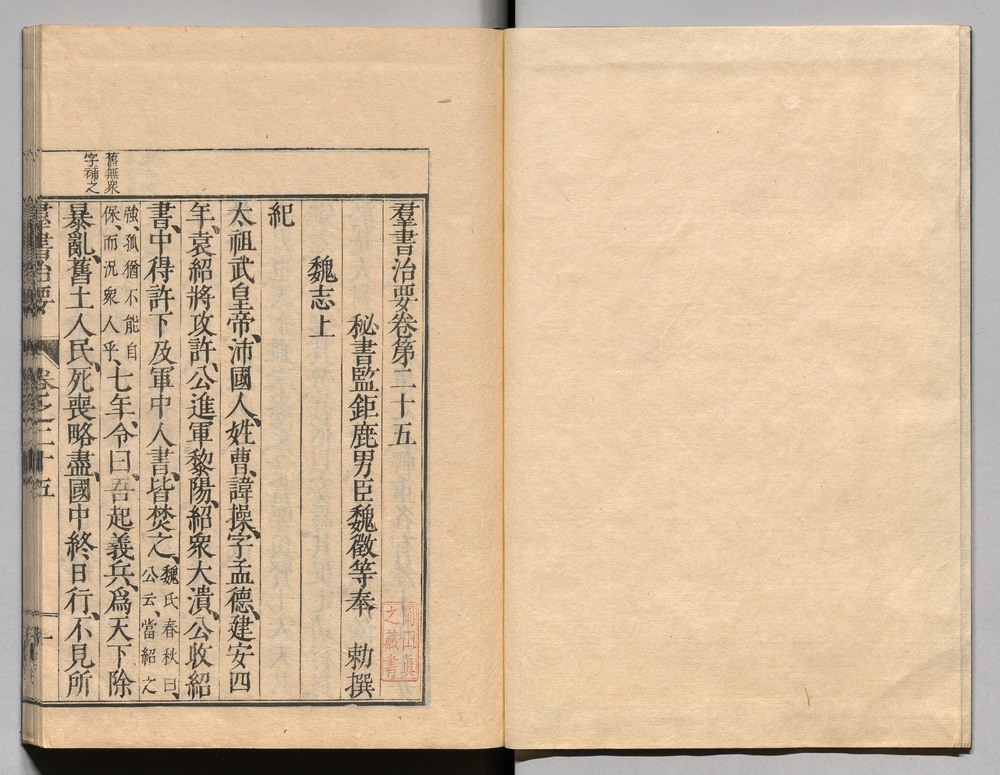 羣書治要卷第二十五
秘書監鉅鹿男臣魏徵等奉　勅撰
魏志上
紀
太祖武皇帝、沛國人、姓曹、諱操、字孟德、建安四
年、袁紹將攻許、公進軍黎陽、紹衆大潰、公收紹
書、中得許下及軍中人書、皆焚之、
魏氏春秋曰、
公云、當紹之
強、孤猶不能自
保、而況衆人乎、
七年、令曰、吾起義兵、爲天下除
暴亂、舊土人民、死喪略盡、國中終日行、不見所
舊無衆
字補之
羣書治要
卷之二十五
一
岡田眞
之藏書